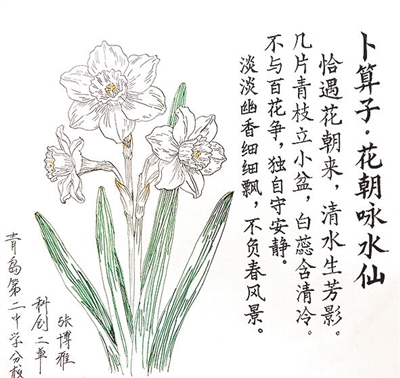 卜算子·花朝咏水仙
恰遇花朝来，清水生芳影。
几片青枝立小盆，白蕊含清冷。
不与百花争，独自守安静。
淡淡幽香细细飘，不负春风景。
张博雅
科创二单
青岛第二中学分校